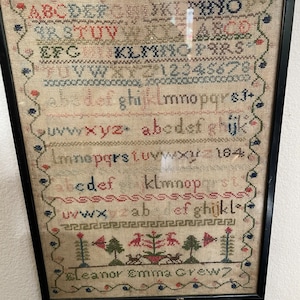 ABCDEF JKLMNO
QRSTUV WXYZ ABCD
EFG KLMNOPQRS
TUVWXYZ 12345678
abcdefghijklmnopqrst
uvwxyz abcdefghijk
lmnopqrstuvwxyz 184
abcdef klmnopqrs
uvwxyzab efghijkl
Eleanor Emma Crew7